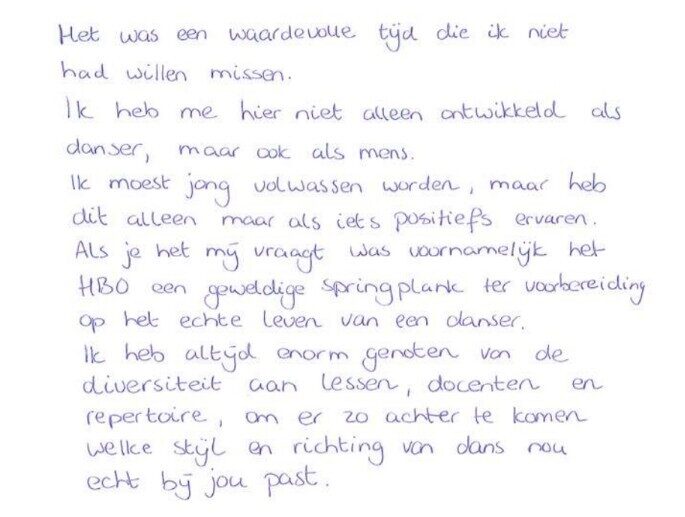 Het was een waardevolle tijd die ik niet
had willen missen.
Ik heb me hier niet alleen ontwikkeld als
danser, maar ook als mens.
Ik moest jong volwassen worden, maar heb
dit alleen maar als iets positiefs ervaren.
Als je het mij vraagt was voornamelijk het
HBO een geweldige springplank ter voorbereiding
op het echte leven van een danser.
Ik heb altijd enorm genoten van de
diversiteit aan lessen, docenten en
repertoire, om er zo achter te komen
welke stijl en richting van dans nou
echt bij jou past.